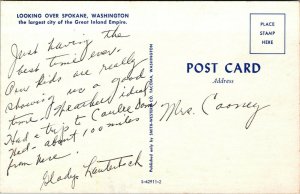 LOOKING OVER SPOKANE, WASHINGTON
the largest city of the Great Inland Empire.
Just having the
best time ever.
Our kids are really
showing us a good
time. Weather ideal
Had a trip to Coulee Dam
Wed- about 100 miles
from here.
Gladys Lauterbach
Published only by SMITH-WESTERN CO. TACOMA, WASHINGTON
S-42911-2
PLACE
STAMP
HERE
POST CARD
Address
Mrs. Cooney